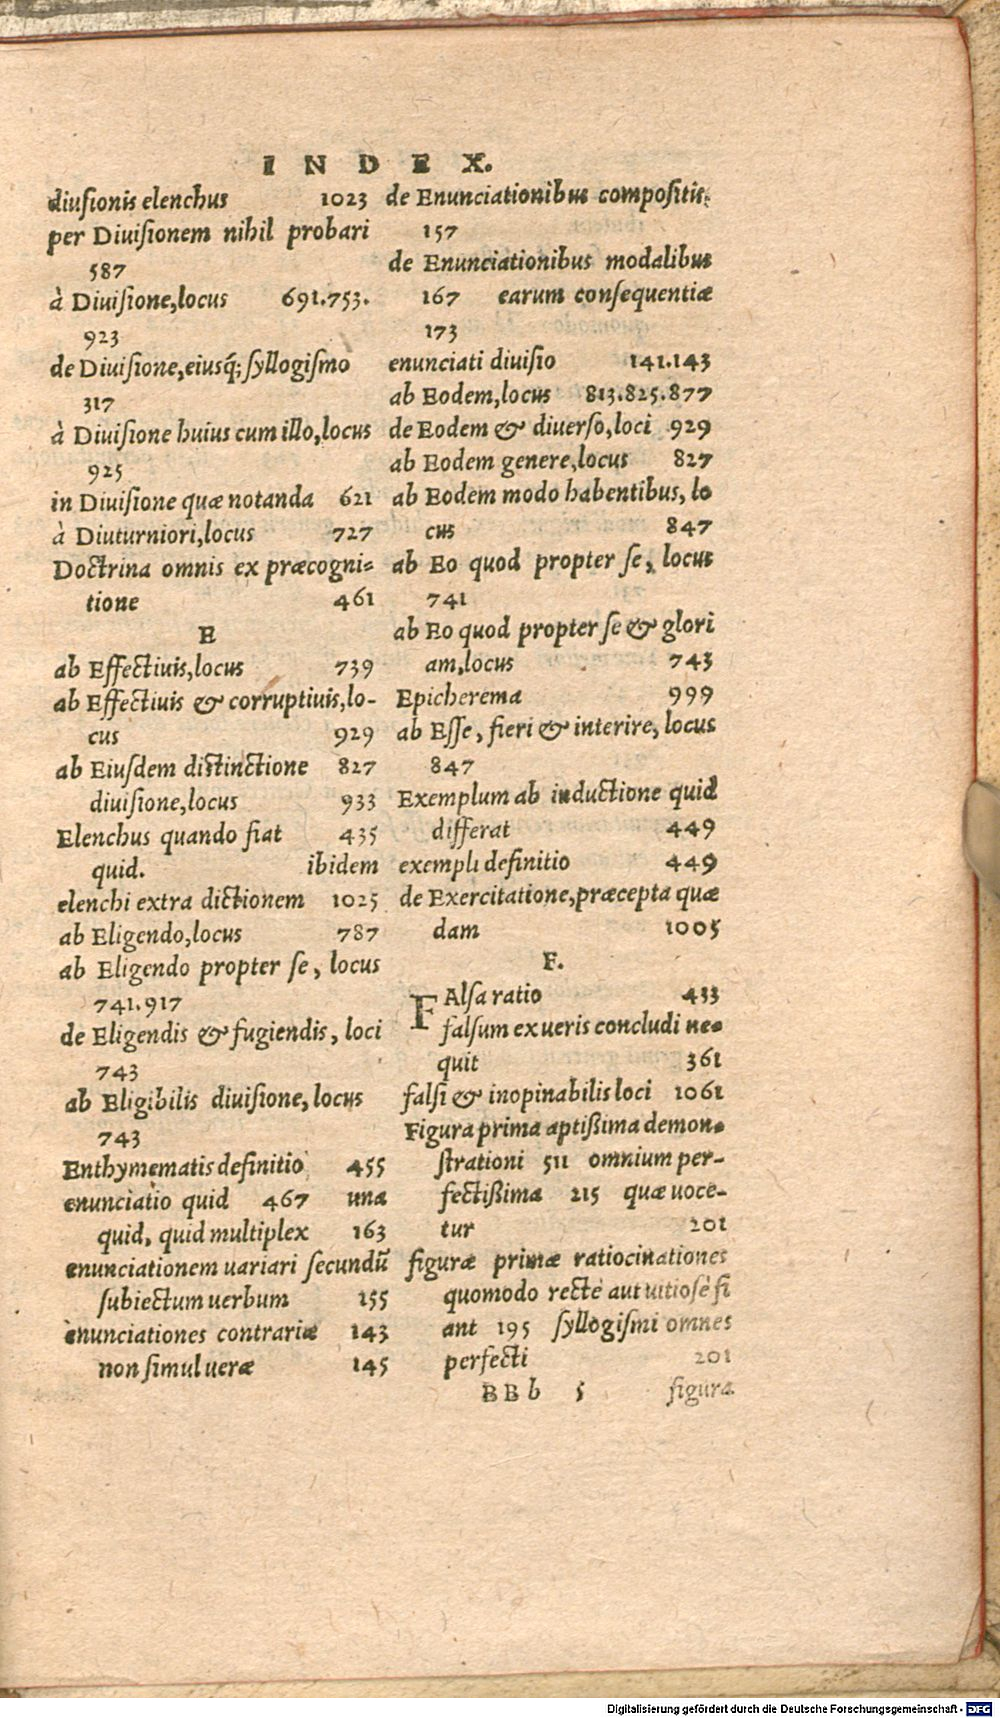 INDEX.
diuisionis elenchus 1023
per Diuisionem nihil probari
587
à Diuisione,locus 691.753.
923
de Diuisione,eiusq́; syllogismo
317
à Diuisione huius cum illo,locus
925
in Diuisione quæ notanda 621
à Diuturniori,locus 727
Doctrina omnis ex præcogni-
tione 461
E
ab Effectiuis,locus 739
ab Effectiuis & corruptiuis,lo-
cus 929
ab Eiusdem distinctione 827
diuisione,locus 933
Elenchus quando fiat 435
quid. ibidem
elenchi extra dictionem 1025
ab Eligendo,locus 787
ab Eligendo propter se, locus
741.917
de Eligendis & fugiendis, loci
743
ab Eligibilis diuisione,locus
743
Enthymematis definitio 455
enunciatio quid 467 una
quid, quid multiplex 163
enunciationem uariari secundũ
subiectum uerbum 155
enunciationes contrariæ 143
non simul ueræ 145
de Enunciationibus compositis;
157
de Enunciationibus modalibus
167 earum consequentiæ
173
enunciati diuisio 141.143
ab Eodem,locus 813.825.877
de Eodem & diuerso,loci 929
ab Eodem genere,locus 827
ab Eodem modo habentibus, lo
cus 847
ab Eo quod propter se, locus
741
ab Eo quod propter se & glori
am,locus 743
Epicherema 999
ab Esse, fieri & interire, locus
847
Exemplum ab inductione quid
differat 449
exempli definitio 449
de Exercitatione,præcepta quæ
dam 1005
F.
FAlsa ratio 433
falsum ex ueris concludi ne-
quit 361
falsi & inopinabilis loci 1061
Figura prima aptißima demon-
strationi 511 omnium per-
fectißima 215 quæ uoce-
tur 201
figuræ primæ ratiocinationes
quomodo rectè aut uitiosè fi
ant 195 syllogismi omnes
perfecti 201
BBb 5 figura
Digitalisierung gefördert durch die Deutsche Forschungsgemeinschaft - DFG